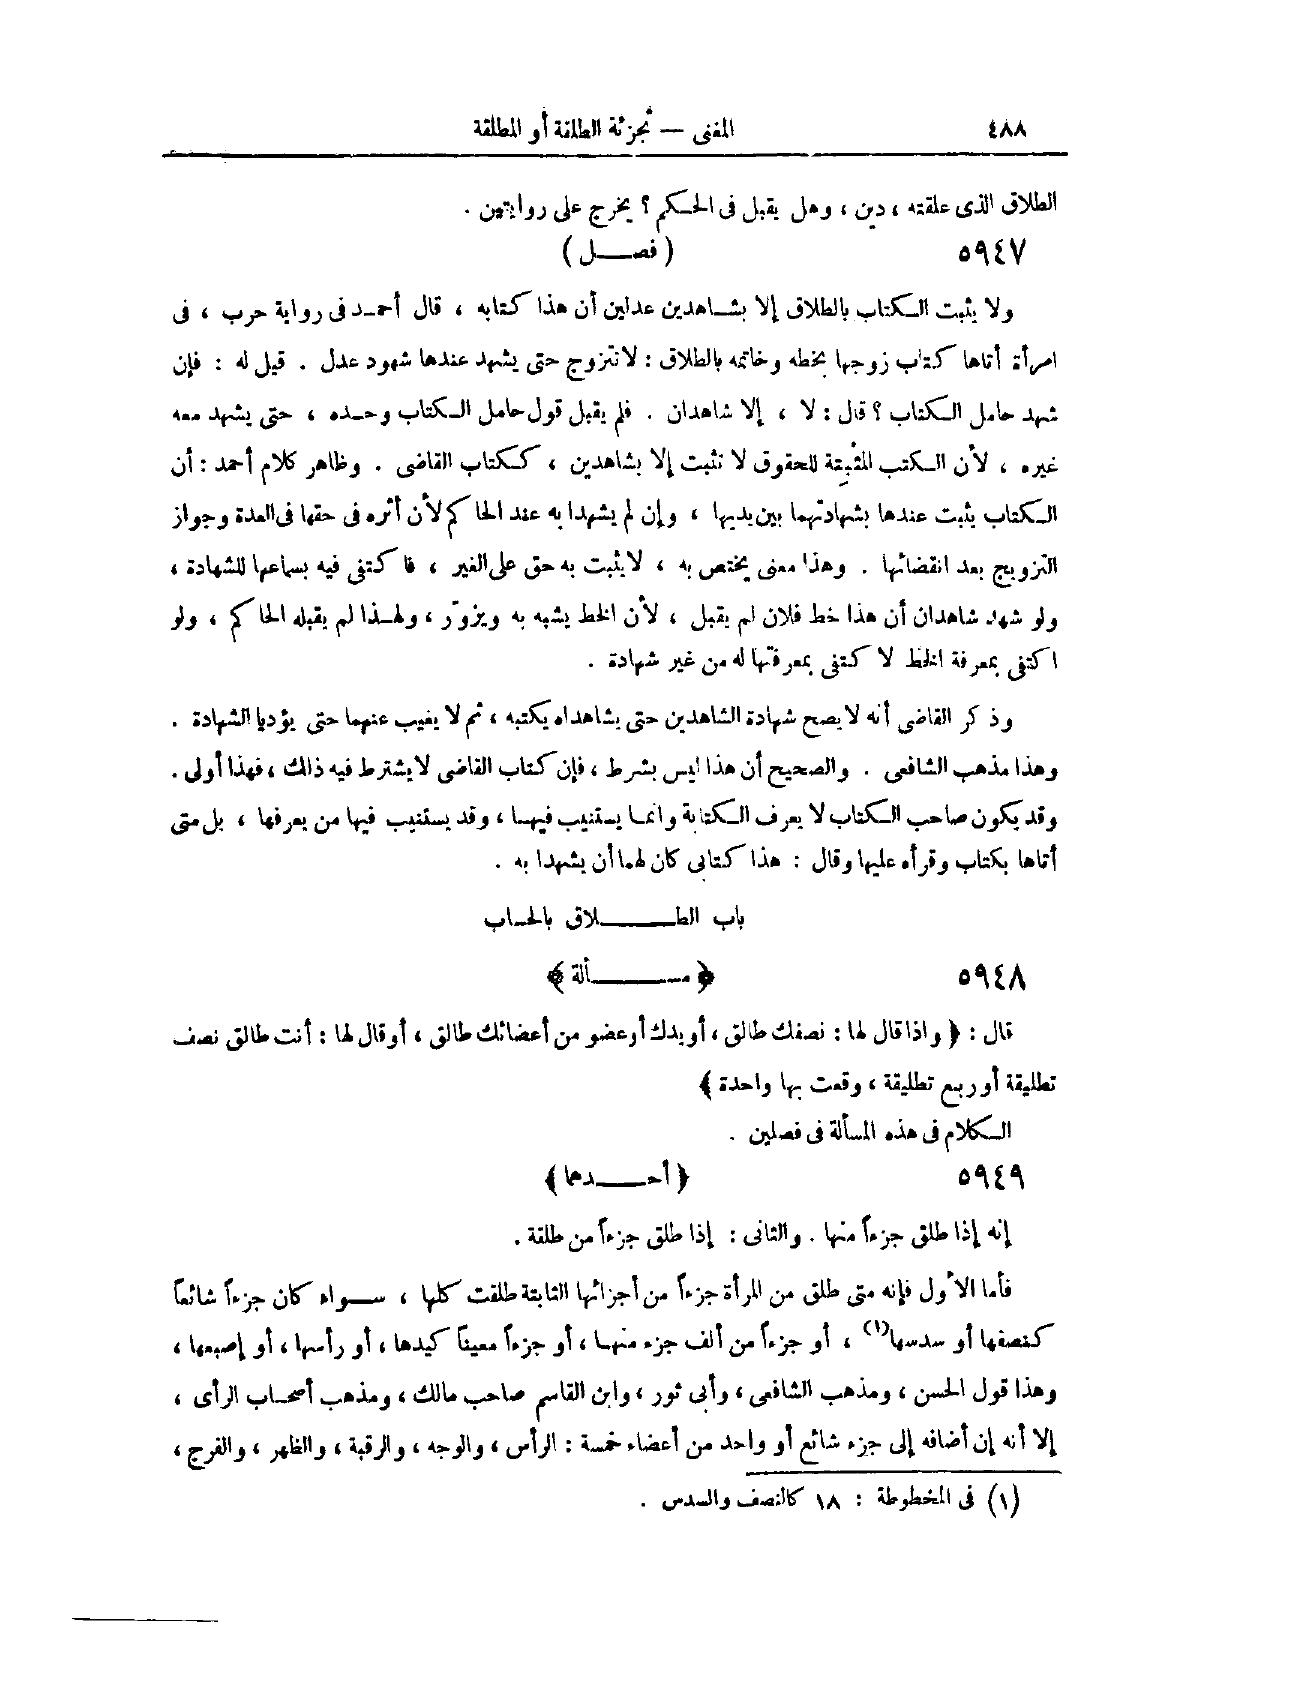 ٤٨٨ المغنى — تجزئة الطلقة أو المطلقة
الطلاق الذى علقته ، دين ، وهل يقبل فى الحكم ؟ يخرج على روايتين .
٥٩٤٧ ( فصل )
ولا يثبت الكتاب بالطلاق إلا بشاهدين عدلين أن هذا كتابه ، قال أحمد فى رواية حرب ، فى
امرأة أتاها كتاب زوجها بخطه وخاتمه بالطلاق : لا تتزوج حتى يشهد عندها شهود عدل . قيل له : فإن
شهد حامل الكتاب ؟ قال : لا ، إلا شاهدان . فلم يقبل قول حامل الكتاب وحده ، حتى يشهد معه
غيره ، لأن الكتب المثبتة للحقوق لا تثبت إلا بشاهدين ، ككتاب القاضى . وظاهر كلام أحمد : أن
الكتاب يثبت عندها بشهادتهما بين يديها ، وإن لم يشهدا به عند الحاكم لأن أثره فى حقها فى العدة وجواز
التزويج بعد انقضائها . وهذا معنى يختص به ، لا يثبت به حق على الغير ، فاكتفى فيه بسماعها للشهادة ،
ولو شهد شاهدان أن هذا خط فلان لم يقبل ، لأن الخط يشبه به ويزوّر ، ولهذا لم يقبله الحاكم ، ولو
اكتفى بمعرفة الخط لاكتفى بمعرفتها له من غير شهادة .
وذكر القاضى أنه لا يصح شهادة الشاهدين حتى يشاهداه يكتبه ، ثم لا يغيب عنهما حتى يؤديا الشهادة .
وهذا مذهب الشافعى . والصحيح أن هذا ليس بشرط ، فإن كتاب القاضى لا يشترط فيه ذلك ، فهذا أولى .
وقد يكون صاحب الكتاب لا يعرف الكتابة وانما يستنيب فيها ، وقد يستنيب فيها من يعرفها ، بل متى
أتاها بكتاب وقرأه عليها وقال : هذا كتابى كان لهما أن يشهدا به .
باب الطلاق بالحساب
٥٩٤٨ ﴿ مسألة ﴾
قال : ﴿ واذا قال لها : نصفك طالق ، أو يدك أو عضو من أعضائك طالق ، أو قال لها : أنت طالق نصف
تطليقة أو ربع تطليقة ، وقعت بها واحدة ﴾
الكلام فى هذه المسألة فى فصلين .
٥٩٤٩ ﴿ أحدهما ﴾
إنه إذا طلق جزءاً منها . والثانى : إذا طلق جزءاً من طلقة .
فأما الأول فإنه متى طلق من المرأة جزءاً من أجزائها الثابتة طلقت كلها ، سواء كان جزءاً شائعاً
كنصفها أو سدسها(١) ، أو جزءاً من ألف جزء منها ، أو جزءاً معيناً كيدها ، أو رأسها ، أو إصبعها ،
وهذا قول الحسن ، ومذهب الشافعى ، وأبى ثور ، وابن القاسم صاحب مالك ، ومذهب أصحاب الرأى ،
إلا أنه إن أضافه إلى جزء شائع أو واحد من أعضاء خمسة : الرأس ، والوجه ، والرقبة ، والظهر ، والفرج ،
(١) فى المخطوطة : ١٨ كالنصف والسدس .